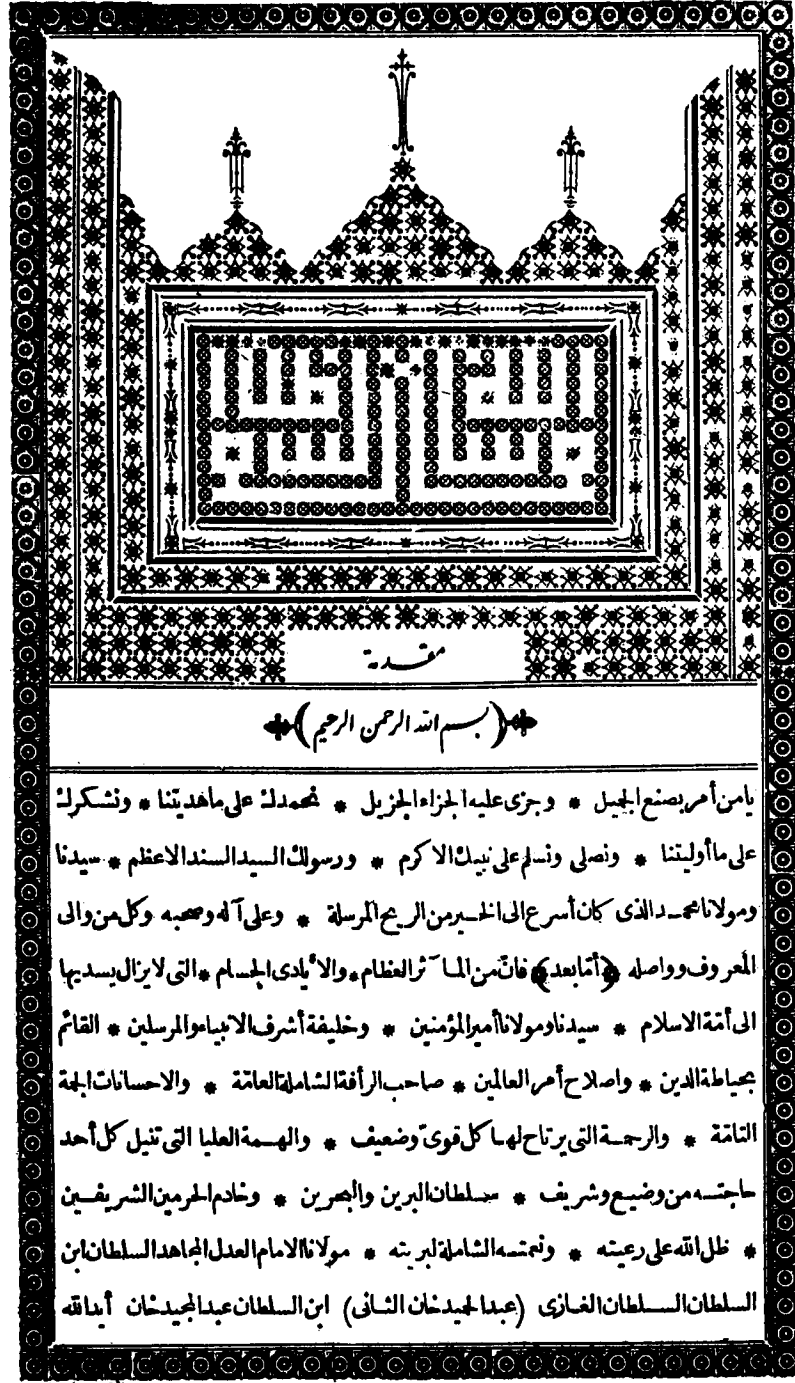 مقدمة
بسم الله الرحمن الرحيم
يا من أمر بصنع الجميل * وجزى عليه الجزاء الجزيل * نحمدك على ما هديتنا * ونشكرك
على ما أوليتنا * ونصلى ونسلم على نبيك الاكرم * ورسولك السيد السند الاعظم * سيدنا
ومولانا محمد الذى كان أسرع الى الخير من الريح المرسلة * وعلى آله وصحبه وكل من والى
المعروف وواصله ﴿أما بعد﴾ فان من المآثر العظام * والأيادى الجسام * التى لا يزال يسديها
الى أمة الاسلام * سيدنا ومولانا أمير المؤمنين * وخليفة أشرف الانبياء والمرسلين * القائم
بحياطة الدين * واصلاح أمر العالمين * صاحب الرأفة الشاملة العامة * والاحسانات الجمة
التامة * والرحمة التى يرتاح لها كل قوى وضعيف * والهمة العليا التى تنيل كل أحد
حاجته من وضيع وشريف * سلطان البرين والبحرين * وخادم الحرمين الشريفين
* ظل الله على رعيته * ونعمته الشاملة لبريته * مولانا الامام العدل المجاهد السلطان ابن
السلطان السلطان الغازى (عبد الحميد خان الثانى) ابن السلطان عبد المجيد خان أيد الله